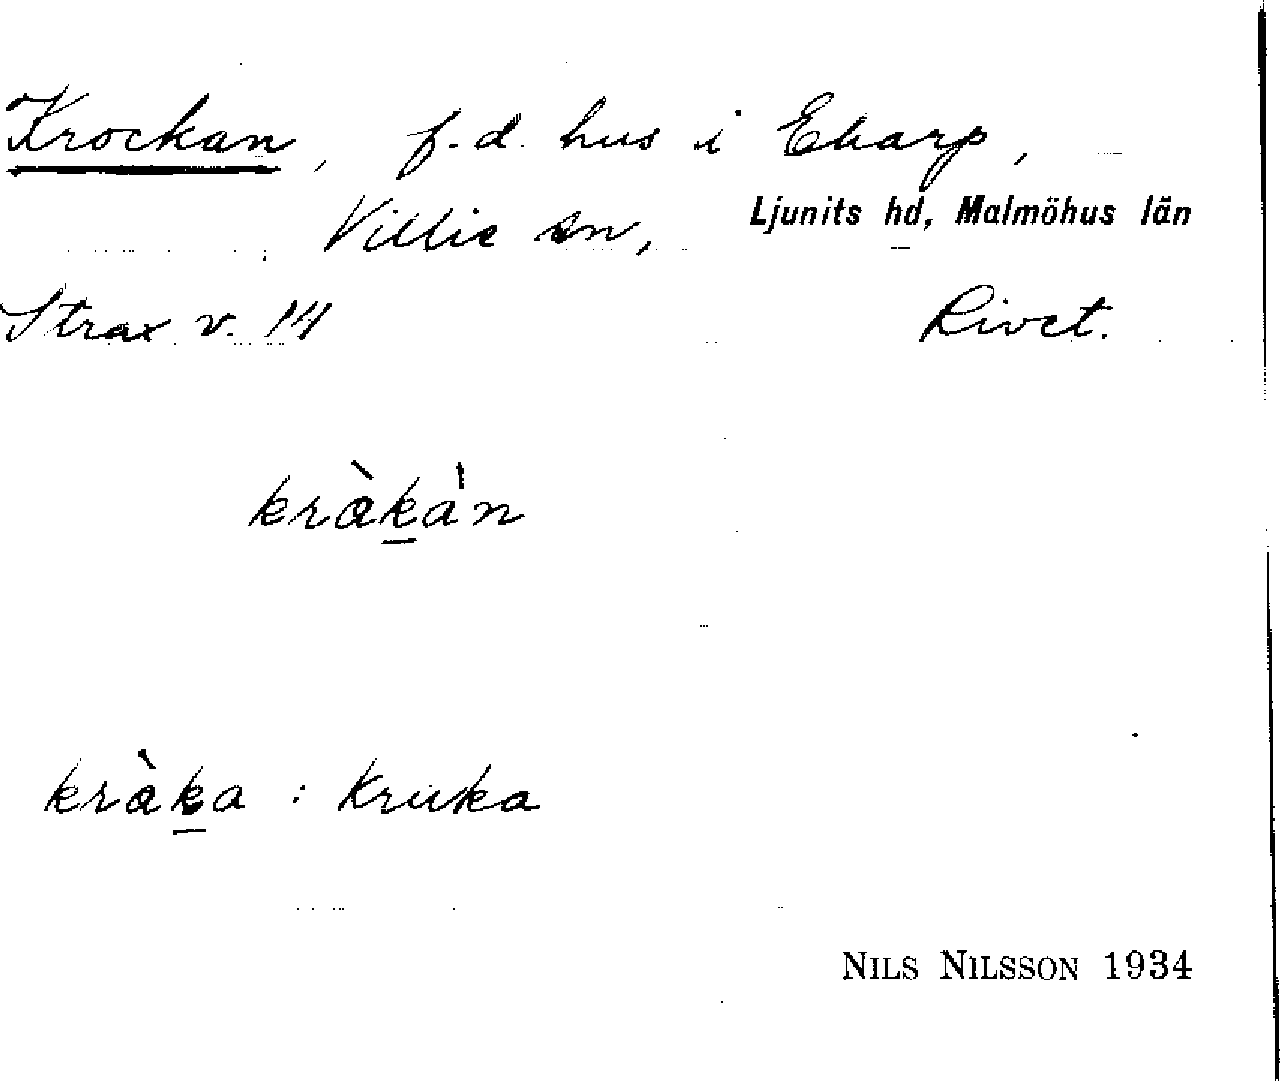 Krockan, f.d. hus i Ekarp,
Villie sn, Ljunits hd, Malmöhus län
Strax v. 14 Rivet.
kràka'n
kràka : kruka
NILS NILSSON 1934